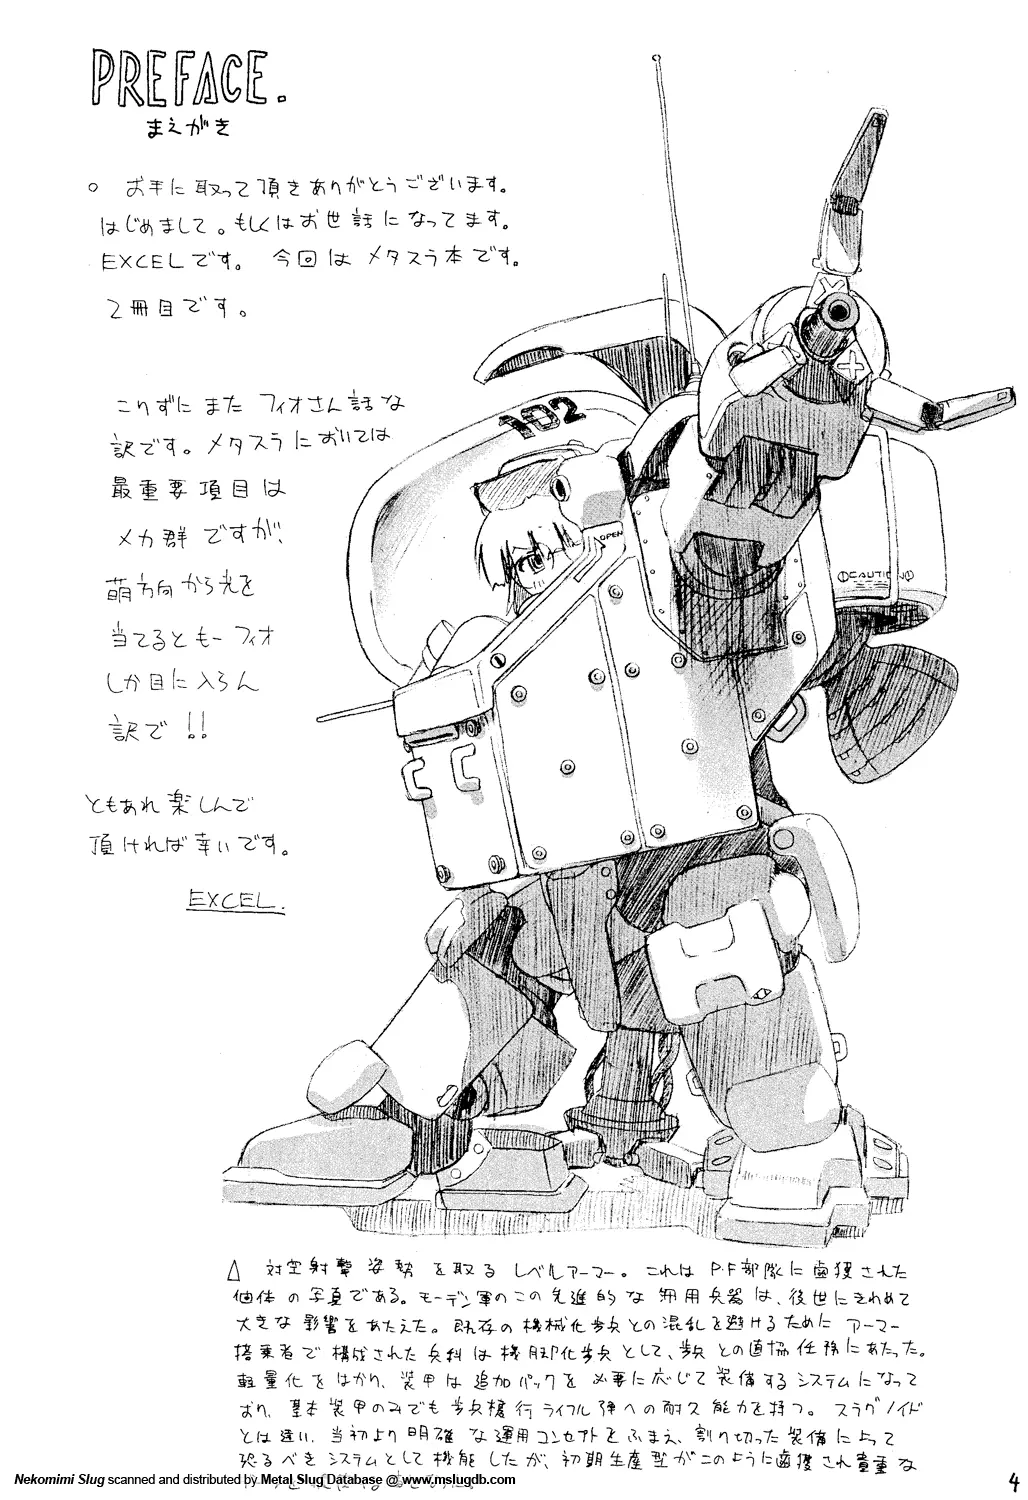 PREFACE.
まえがき
○ お手に取って頂きありがとうございます。
はじめまして。もしくはお世話になってます。
EXCELです。今回はメタスラ本です。
2冊目です。
こりずにまたフィオさん話な
訳です。メタスラにおいては
最重要項目は
メカ群ですが、
萌方向から光を
当てるともーフィオ
しか目に入らん
訳で!!
ともあれ楽しんで
頂ければ幸いです。
EXCEL.
102
OPEN
CAUTION
△ 対空射撃姿勢を取るレベルアーマー。これはP.F部隊に鹵獲された
個体の写真である。モーデン軍のこの先進的な 兵器は、後世にきわめて
大きな影響をあたえた。既存の機械化歩兵との混乱を避けるためにアーマー
搭乗者で構成された兵科は機脚化歩兵として、歩兵との直協任務にあたった。
軽量化をはかり、装甲は追加パックを必要に応じて装備するシステムになって
おり、基本装甲のみでも歩兵携行ライフル弾への耐久能力を持つ。スラグノイド
とは違い、当初より明確な運用コンセプトをふまえ、割り切った装備によって
恐るべきシステムとして機能したが、初期生産型がこのように鹵獲され貴重な
Nekomimi Slug scanned and distributed by Metal Slug Database @ www.mslugdb.com
4